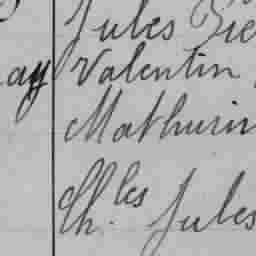 Jules Pie
ay Valentin
Mathurin
Ch.les Jules